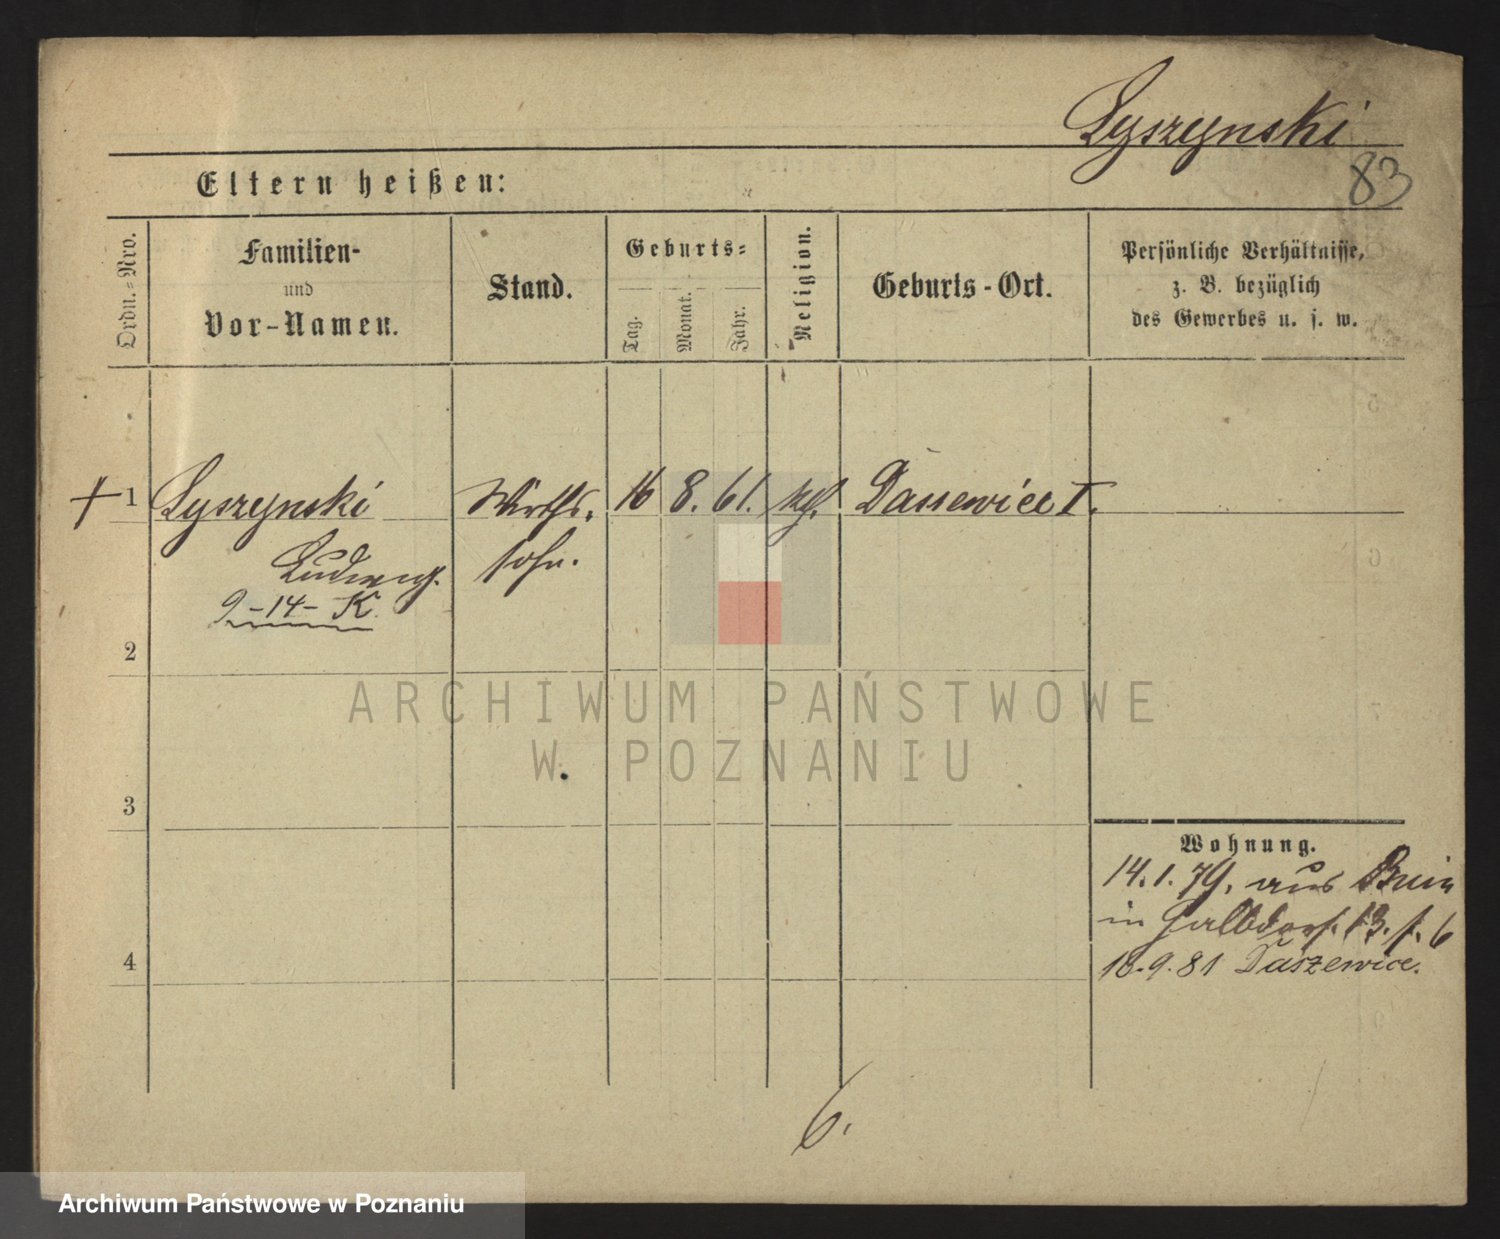 Lyszynski
83
Eltern heißen:
Ordn.-Nro.
Familien-
und
Vor-Namen.
Stand.
Geburts-
Tag.
Monat.
Jahr.
Religion.
Geburts-Ort.
Persönliche Verhältnisse,
z. B. bezüglich
des Gewerbes u. s. w.
+ 1 Lyszynski Wirths- 16 8. 61. kth. Dassewice I.
Ludwig. sohn.
9-14- K.
2
ARCHIWUM PAŃSTWOWE
W POZNANIU
3
Wohnung.
14.1.79. aus Bnin
in 13. f. 6
4
18.9.81 Daszewice.
6.
Archiwum Państwowe w Poznaniu